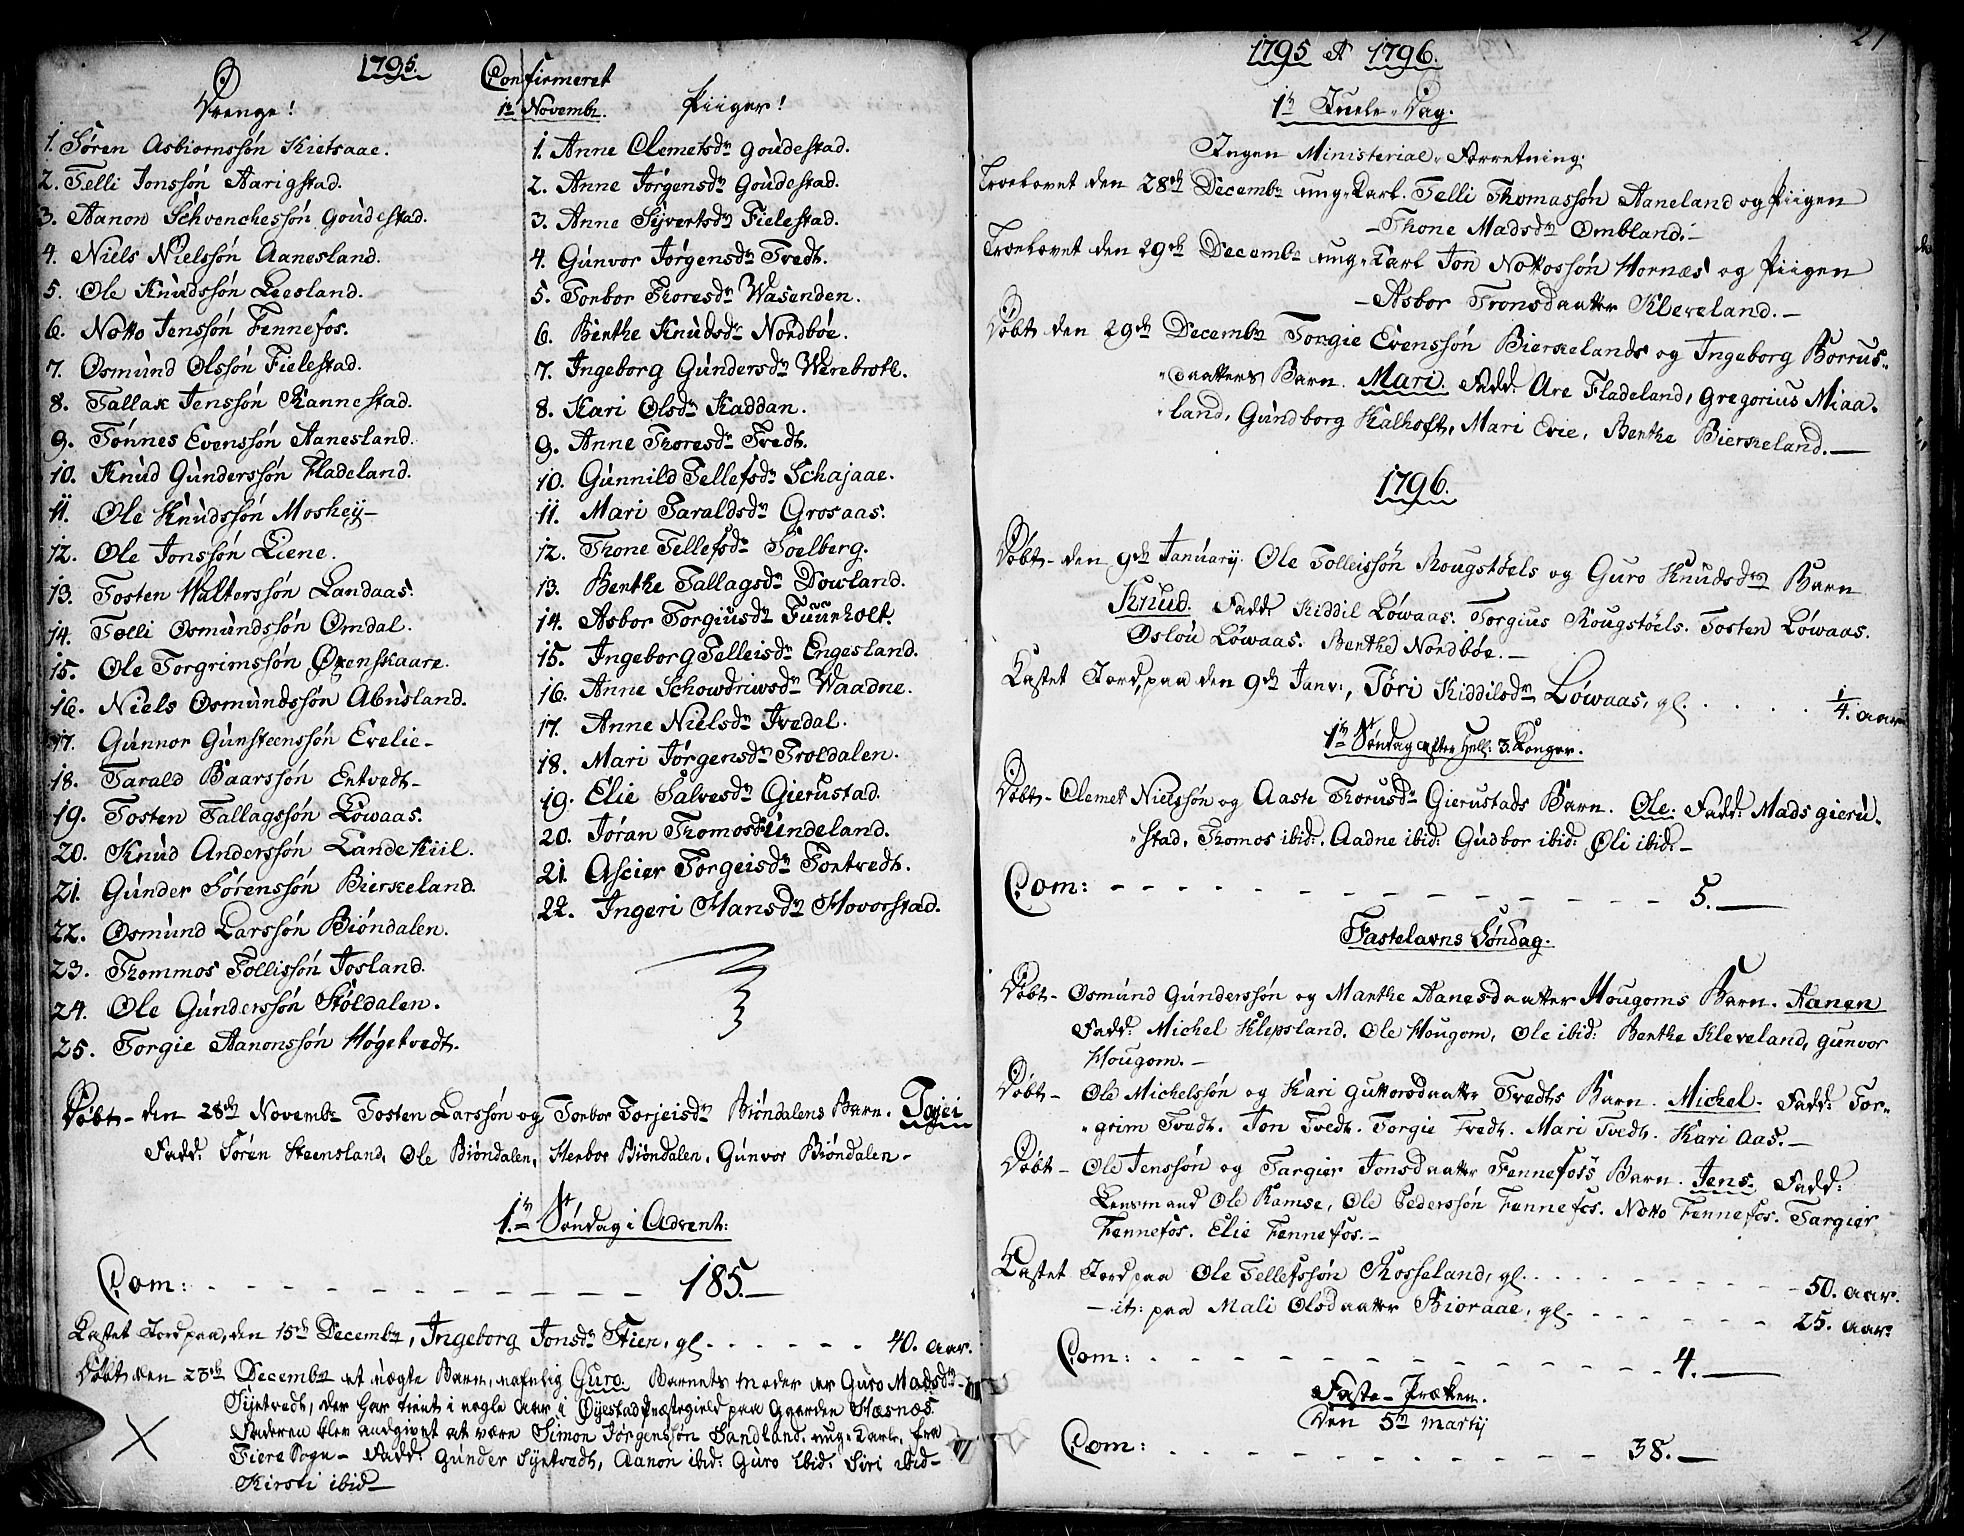 1795.
Confirmeret
Drenge!
1ste Novembr.
Piiger!
1. Sören Asbiornssön Kietsaae.
2. Telli Jonssön Aarigstad.
3. Aanon Schvenchessön Goudestad.
4. Niels Nielssön Aanesland.
5. Ole Knudssön Liesland.
6. Notto Jenssön Fennefos.
7. Osmund Olssön Fielestad.
8. Tallak Jenssön Rannestad.
9. Tönnes Evenssön Aanesland.
10. Knud Gunderssön Fladeland.
11. Ole Knudssön Moshey-
12. Ole Jonssön Liene.
13. Tosten Walterssön Landaas.
14. Telli Osmundssön Omdal.
15. Ole Torgrimssön Øxenskaare.
16. Niels Osmundssön Abusland.
17. Gunnor Gunsteenssön Evelie-
18. Tarald Baarssön Entvedt-
19. Tosten Tallagssön Löwaas.
20. Knud Anderssön Landekiil.
21. Gunder Sörenssön Bierkeland.
22. Osmund Larssön Biöndalen.
23. Thommos Tollissön Josland.
24. Ole Gunderssön Stöldalen.
25. Torgie Aanonssön Högetvedt.
1. Anne Clemetsdr Goudestad.
2. Anne Jörgensdr Goudestad.
3. Anne Sijvertsdr Fielestad.
4. Gunvor Jörgensdr Tvedt.
5. Torbor Thoresdr Wasenden.
6. Berthe Knudsdr Nordböe.
7. Ingeborg Gundersdr Werebrotl.
8. Kari Olsdr Kaddan.
9. Anne Thoresdr Tvedt.
10. Gunnild Tellefsdr Schajaae.
11. Mari Taraldsdr Grosaas.
12. Thone Tellefsdr Soelberg.
13. Berthe Tallagsdr Dowland.
14. Asbor Torgiusdr Fuurholt.
15. Ingeborg Telleisdr Engesland.
16. Anne Schowdriwsdr Waadne.
17. Anne Nielsdr Ivedal.
18. Mari Jörgensdr Troldalen.
19. Elie Salvesdr Gierustad.
20. Jöran Thomosdr Undeland.
21. Ascier Torgeisdr Tortvedt.
22. Ingeri Hansdr Hovorstad.
Döbt - den 28de Novembr Tosten Larssön og Torbor Torjeisdr Biöndalens Barn. Tajei
Fadd. Sören Steensland, Ole Biöndalen, Herbor Biöndalen, Gunvor Biöndalen-
1ste Söndag i Advent:
Com: - - - - - - - - - - - - 185.-
Kastet Jord paa, den 15de Decembr, Ingeborg Jonsdr Stien, gl. . . . . . 40. aar.
Döbt den 28de Decembr et uægte Barn, nafnlig Guro. Barnets moder er Guro Madsdr
Sijetvedt, der har tient i nogle aar i Øyestad Præstegield paa Gaarden Næsnæs
Faderen blev andgivet at være Simon Jörgenssön Sandland, ung-Karl, fra
Fiere Sogn- Fadd: Gunder Sijetvedt, Aanon ibid: Guro ibid: Siri ibid-
Kirsti ibid-
1795 et 1796.
1ste Juele-Dag.
Ingen Ministerial-Forretning.
Troelovet den 28de Decembr ung-Karl Telli Thomassön Aaneland og Piigen
- Thone Madsdr Ombland.-
Troelovet den 29de Decembr ung-Karl Jon Nottossön Hornæs og Piigen
- Asbor Tronsdaatter Kleveland.-
Döbt den 29de Decembr Torgie Evenssön Bierkelands og Ingeborg Borrus-
daatters Barn. Mari. Fadd: Are Fladeland, Gregorius Miaa-
land, Gundborg Kalhoft, Mari Evie, Berthe Bierkeland.-
1796.
Döbt - den 9de Januarij Ole Tolleissön Rougstöels og Guro Knudsdrs Barn
Knud. Fadd: Kiddil Löwaas. Torgius Rougstöels. Tosten Löwaas.
Oslou Löwaas. Berthe Nordböe.-
Kastet Jord, paa den 9de Janv:, Töri Kiddilsdr Löwaas, gl. . . . . . 1/4. aar
1ste Söndag efter Hell. 3. Konger.
Döbt - Clemet Nielssön og Aaste Thorusdr Gierustads Barn. Ole. Fadd: Mads gieru-
stad, Thomos ibid:. Aadne ibid: Gudbor ibid: Øli ibid:-
Com: - - - - - - - - - - - - - 5.-
Fastelavns Söndag.
Döbt - Osmund Gunderssön og Marthe Aanesdaatter Hougoms Barn. Aanen
Fadd: Michel Klepsland, Ole Hougom, Ole ibid: Berthe Kleveland, gunvor
Hougom.-
Döbt - Ole Michelssön og Kari Guttorsdaatter Tvedts Barn. Michel. Fadd: Tor-
grim Tvedt. Jon Tvedt. Torgie Tvedt. Mari Tvedt. Kari Aas.-
Döbt - Ole Jenssön og Targier Jonsdaatter Fennefoss Barn. Jens. Fadd:
Lensmand Ole Ramse, Ole Pederssön Fennefos. Notto Fennefos. Targier
Fennefos. Elie Fennefos.-
Kastet Jord paa Ole Tellefssön Rosseland, gl. . . . . . . . 50. aar.
- it: paa Mali Olsdaatter Bioraae, gl. - - - - - - 25. aar:
Com: - - - - - - - - - - - - 4.-
Faste-Præken.
Den 5te Martij
Com: - - - - - - - - - - 38.-